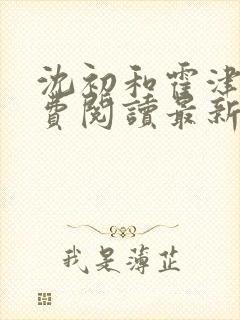 沈初和霍津
費閱讀最新
我是薄芷